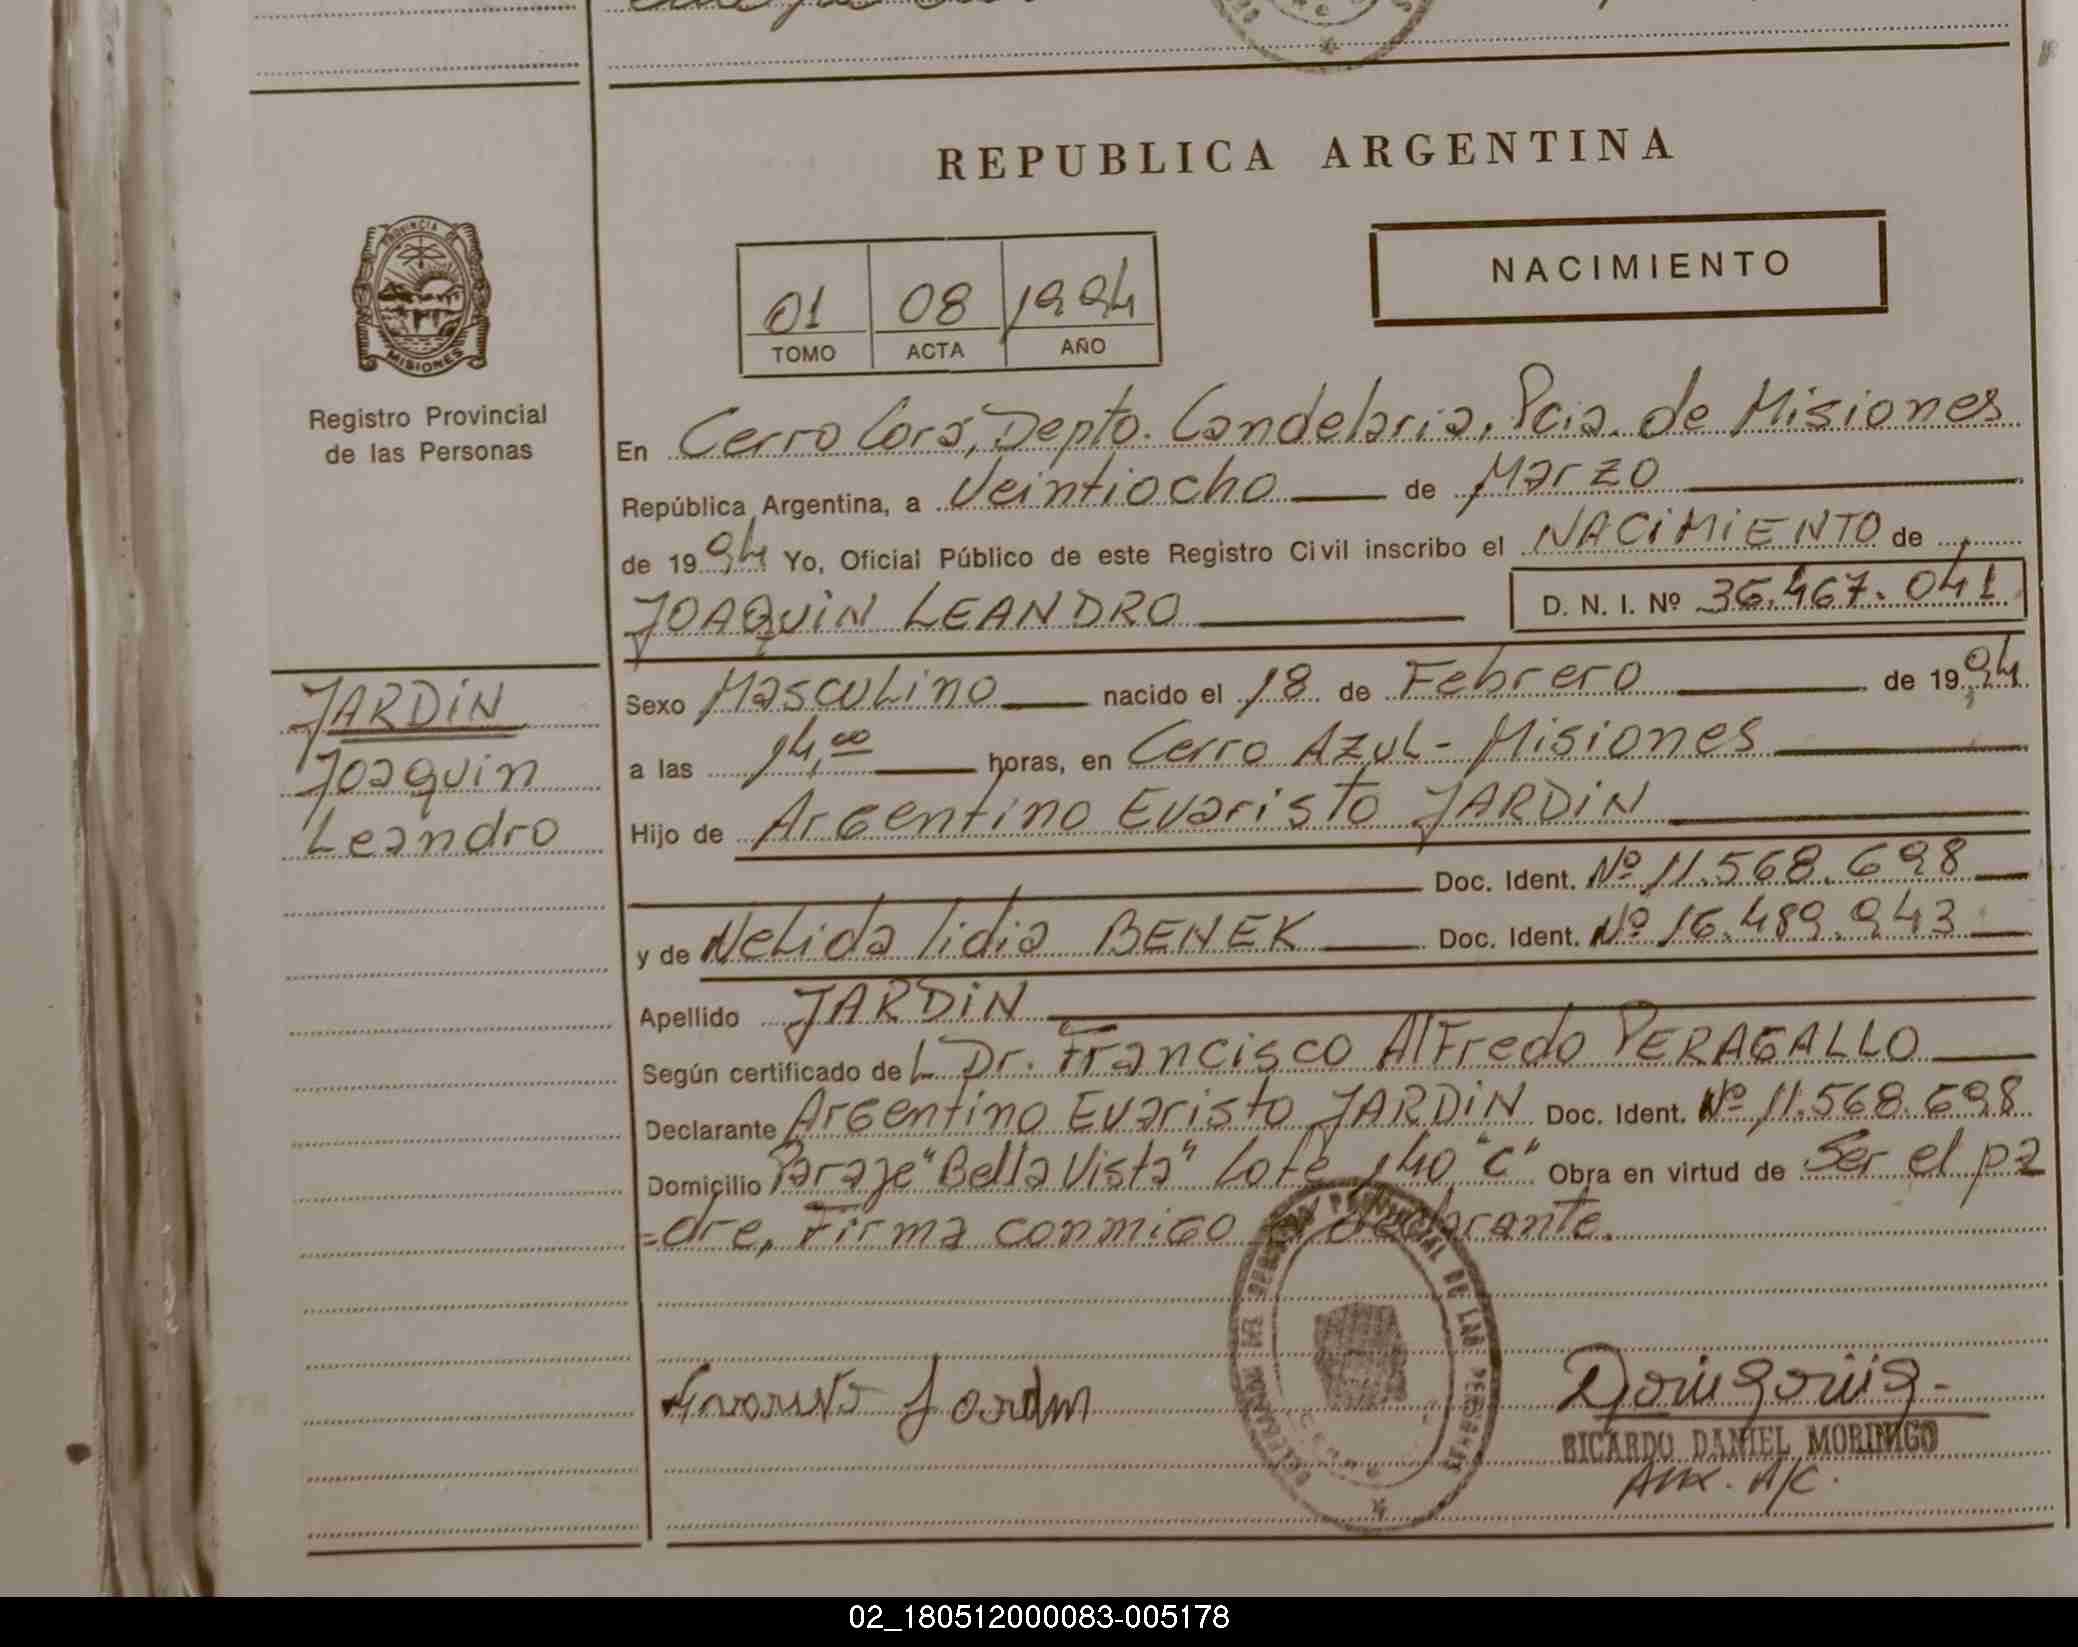 REPUBLICA ARGENTINA
NACIMIENTO
01 08 1994
TOMO ACTA AÑO
PROVINCIA D MISIONES
Registro Provincial
de las Personas
En Cerro Corá, Depto. Candelaria, Pcia. de Misiones
República Argentina, a Veintiocho de Marzo
de 1994 Yo, Oficial Público de este Registro Civil inscribo el NACIMIENTO de
JOAQUIN LEANDRO D. N. I. Nº 36.467.041
JARDIN
Joaquin
Leandro
Sexo Masculino nacido el 18 de Febrero de 1994
a las 14,00 horas, en Cerro Azul - Misiones
Hijo de Argentino Evaristo JARDIN
Doc. Ident. Nº 11.568.698
y de Nelida lidia BENEK Doc. Ident. Nº 16.489.943
Apellido JARDIN
Según certificado del Dr. Francisco Alfredo PERAGALLO
Declarante Argentino Evaristo JARDIN Doc. Ident. Nº 11.568.698
Domicilio Paraje "Bella Vista" Lote 140 "C" Obra en virtud de Ser el pa
=dre, Firma conmigo el declarante.
Evaristo Jardin
PROVINCIAL DE LAS PERSONAS
RICARDO DANIEL MORINIGO
Aux. A/C.
02_180512000083-005178